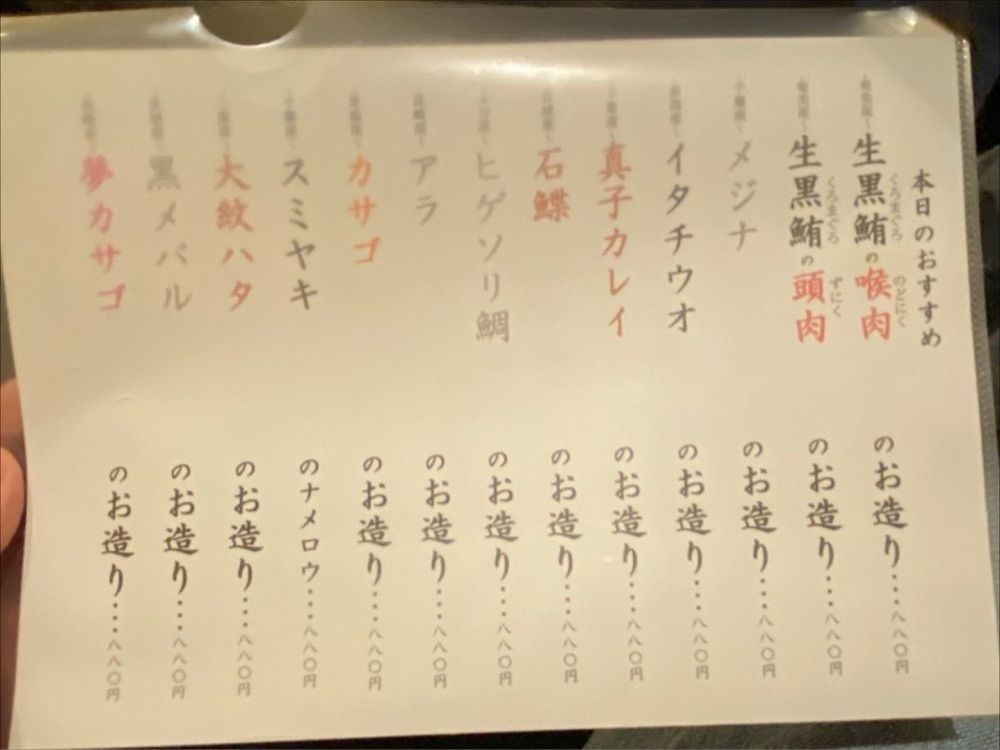 本日のおすすめ
生黒鮪の喉肉のお造り‥‥八八〇円
くろまぐろ
のどにく
生黒鮪の頭肉のお造り‥‥八八〇円
くろまぐろ
ずにく
メジナのお造り‥‥八八〇円
イタチウオのお造り‥‥八八〇円
真子カレイのお造り‥‥八八〇円
石鰈のお造り‥‥八八〇円
ヒゲソリ鯛のお造り‥‥八八〇円
アラのお造り‥‥八八〇円
カサゴのお造り‥‥八八〇円
スミヤキのナメロウ‥‥八八〇円
大紋ハタのお造り‥‥八八〇円
黒メバルのお造り‥‥八八〇円
夢カサゴのお造り‥‥八八〇円